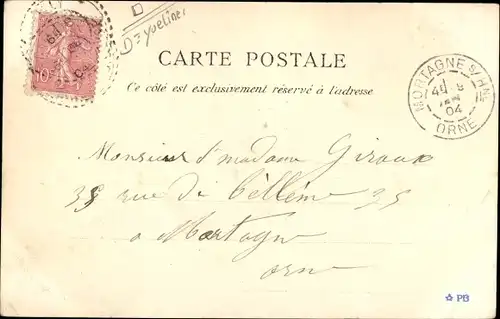 D=yvelines
CARTE POSTALE
Ce côté est exclusivement réservé à l'adresse
MORTAGNE S/ HNE
04
ORNE
Monsieur & madame Giraux
35 rue de Bélléme 35
a Mortagn
orn
PB